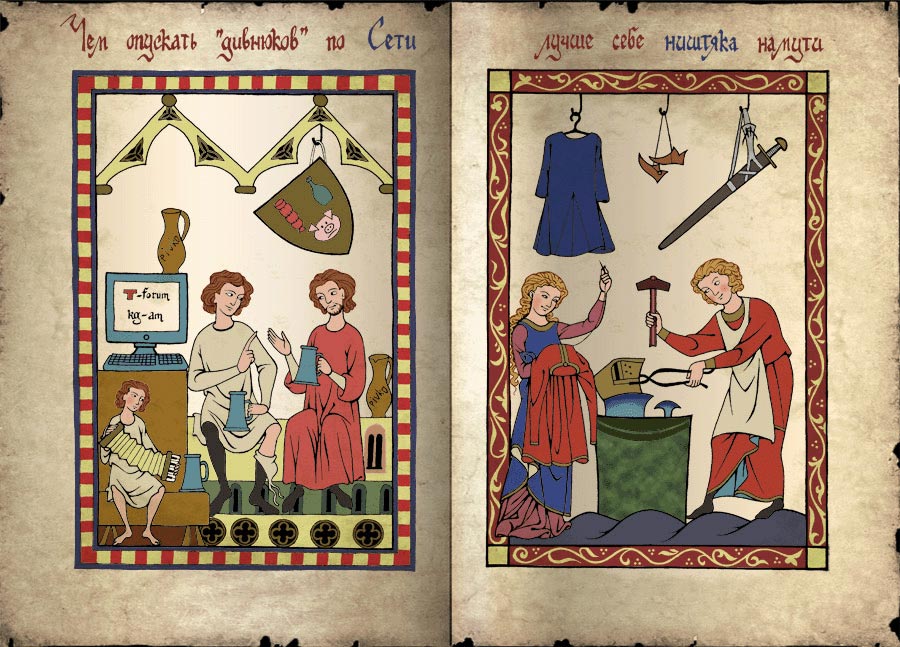 Чем опускать "дивнюков" по Сети
лучше себе ништяка намути
PIVAS
T-forum
kg-am
PIVAS